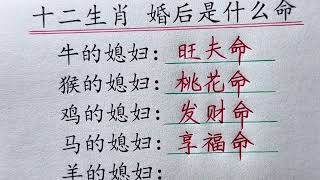 十二生肖 婚后是什么命
牛的媳妇：旺夫命
猴的媳妇：桃花命
鸡的媳妇：发财命
马的媳妇：享福命
羊的媳妇：